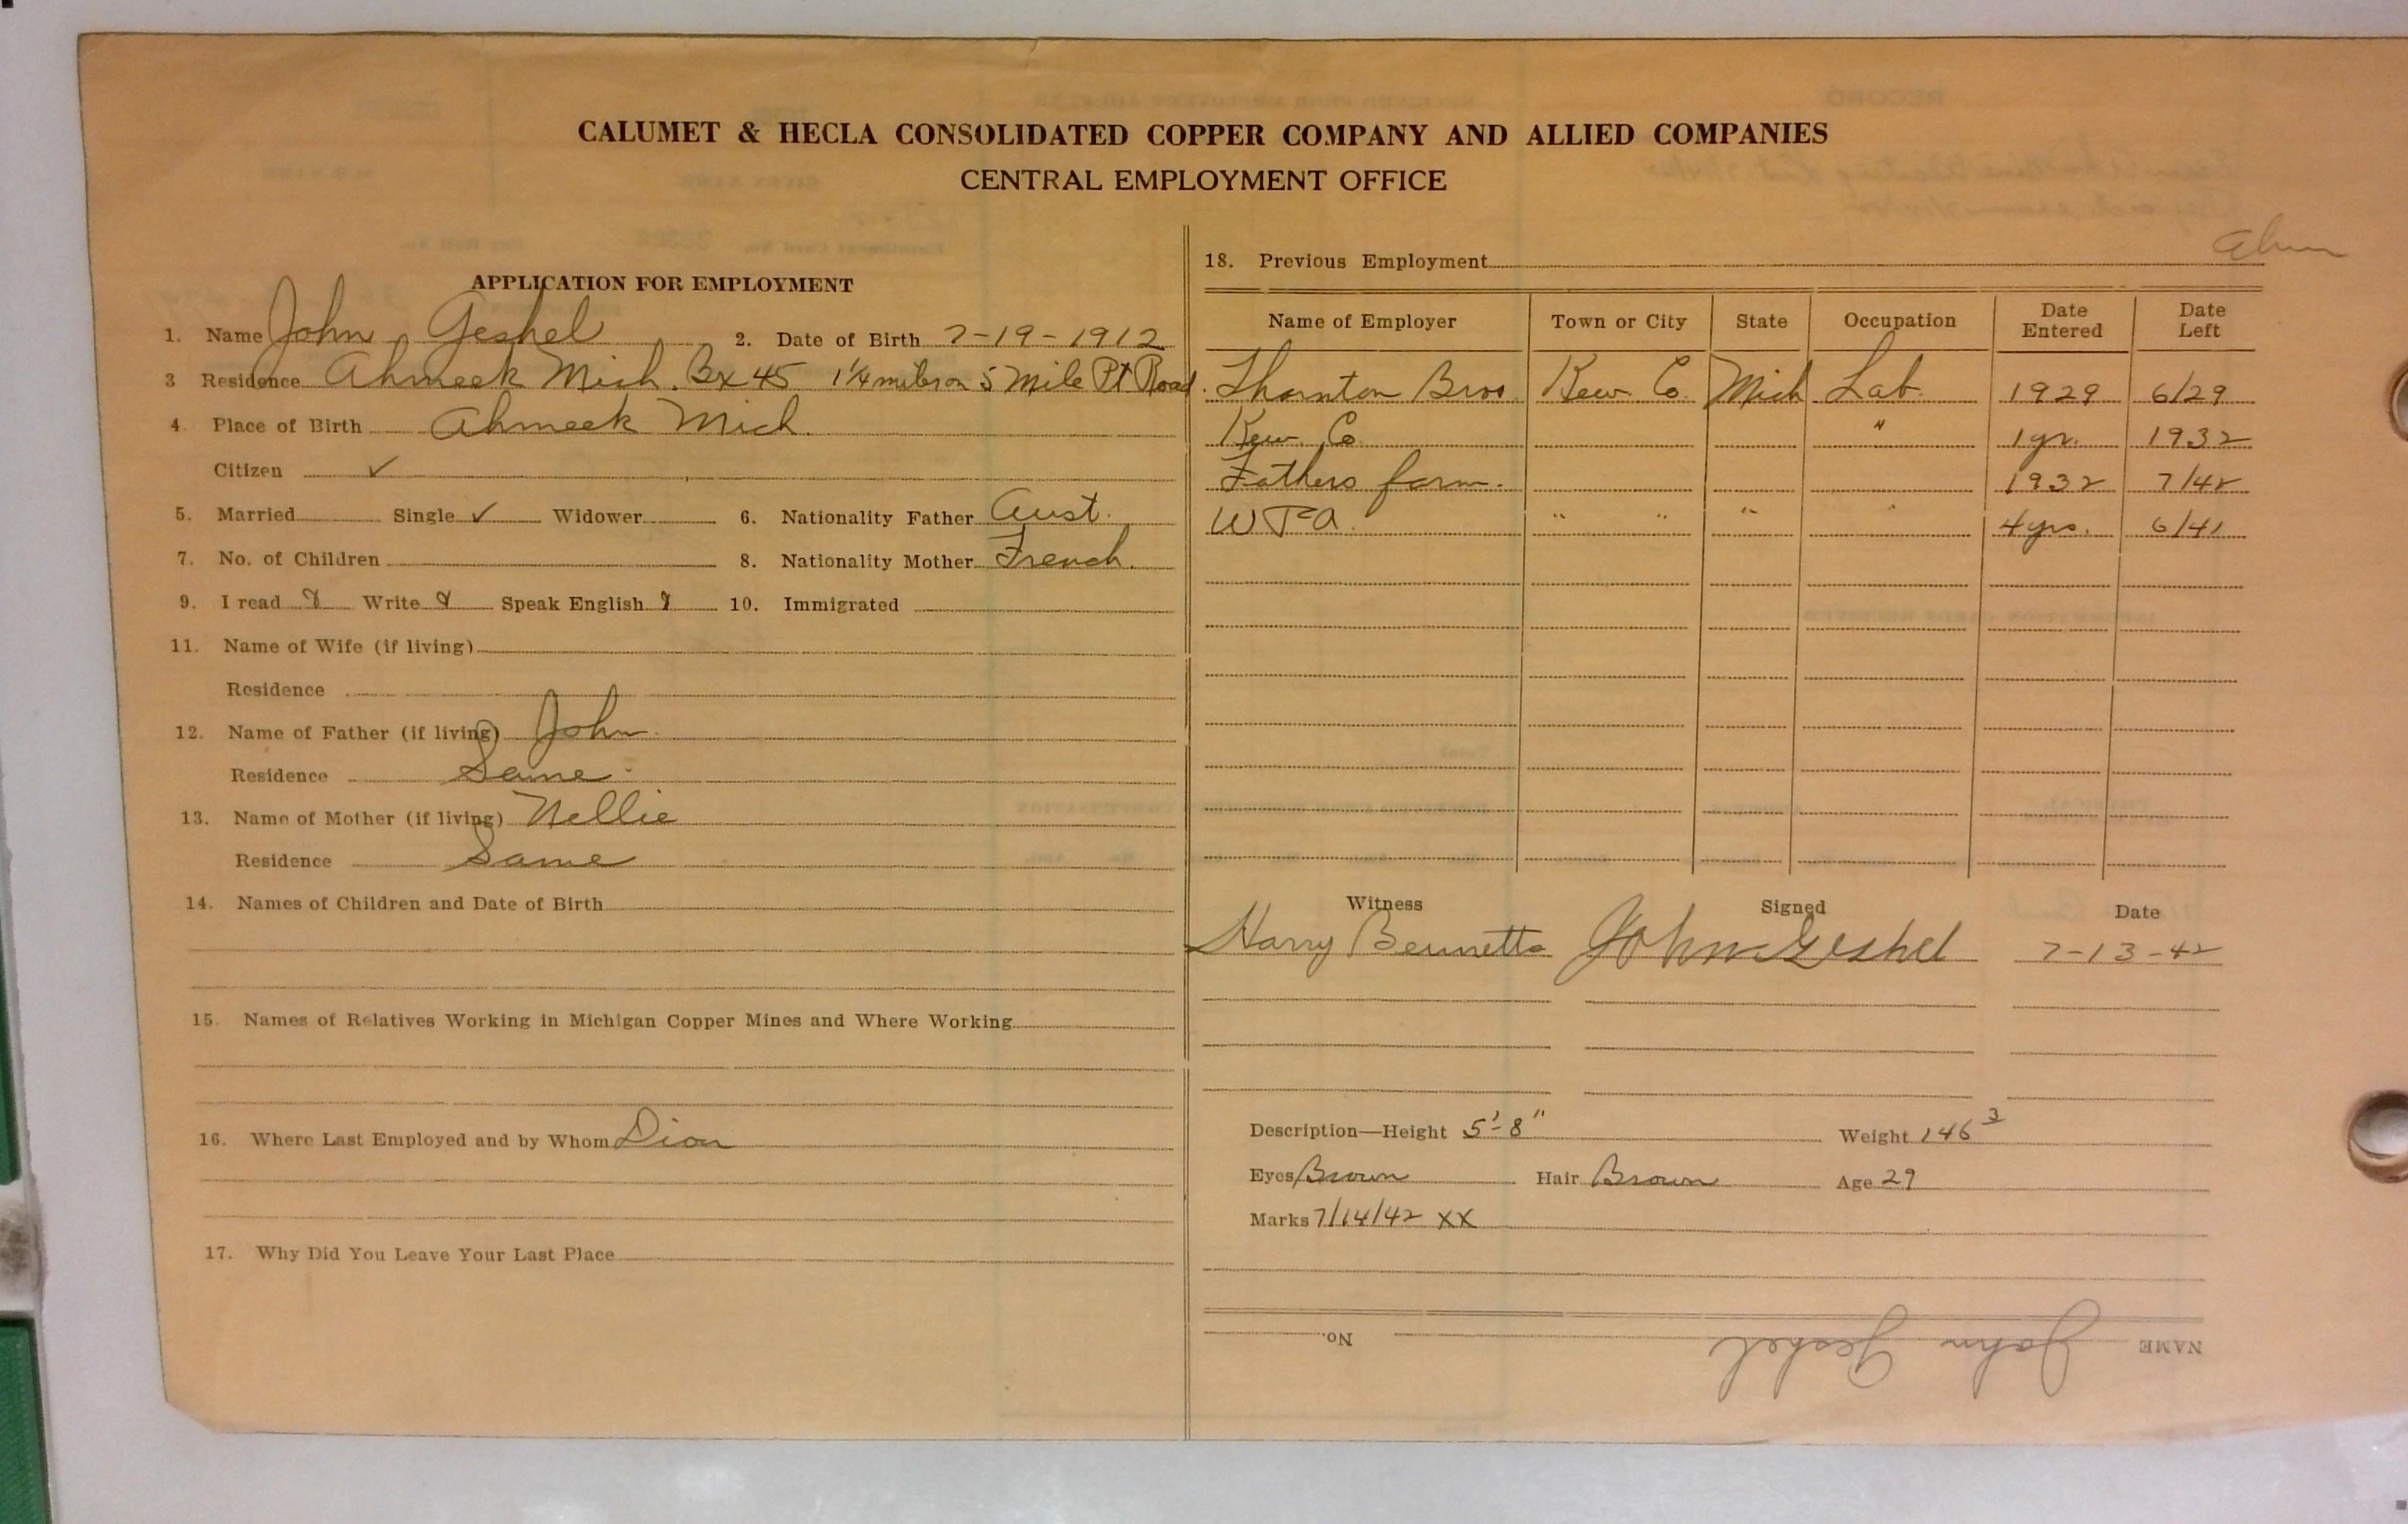 CALUMET & HECLA CONSOLIDATED COPPER COMPANY AND ALLIED COMPANIES
CENTRAL EMPLOYMENT OFFICE
APPLICATION FOR EMPLOYMENT
1. Name John Geshel 2. Date of Birth 7-19-1912
3 Residence Ahmeek Mich. Bx 45 1 1/4 miles on 5 Mile Pt Road.
4. Place of Birth Ahmeek Mich.
Citizen ✓
5. Married Single ✓ Widower 6. Nationality Father Aust.
7. No. of Children 8. Nationality Mother French.
9. I read Write Speak English 10. Immigrated
11. Name of Wife (if living)
Residence
12. Name of Father (if living) John
Residence Same
13. Name of Mother (if living) Nellie
Residence Same
14. Names of Children and Date of Birth
15. Names of Relatives Working in Michigan Copper Mines and Where Working
16. Where Last Employed and by Whom
17. Why Did You Leave Your Last Place
18. Previous Employment
Name of Employer Town or City State Occupation Date Entered Date Left
Thornton Bros Kew. Co. Mich Lab. 1929 6/29
Kew. Co. " 1yr. 1932
Fathers farm. 1932 7/42
WPA. " " " " 4yrs. 6/41
Witness Signed Date
Harry Bennetts John Geshel 7-13-42
Description—Height 5'-8" Weight 146 3
Eyes Brown Hair Brown Age 29
Marks 7/14/42 XX
NAME John Geshel No.